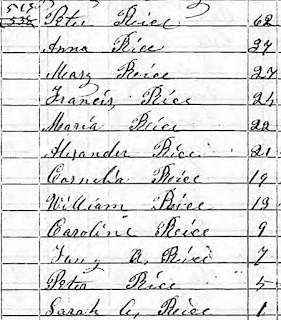 Peter Reice 62
Anna Reice
Mary Reice 27
Francis Reice 24
Maria Reice 22
Alexander Reice 21
Cornelia Reice 19
William Reice 13
Caroline Reice 9
A. Reice 7
Peter Reice 5
Sarah A, Reice 1